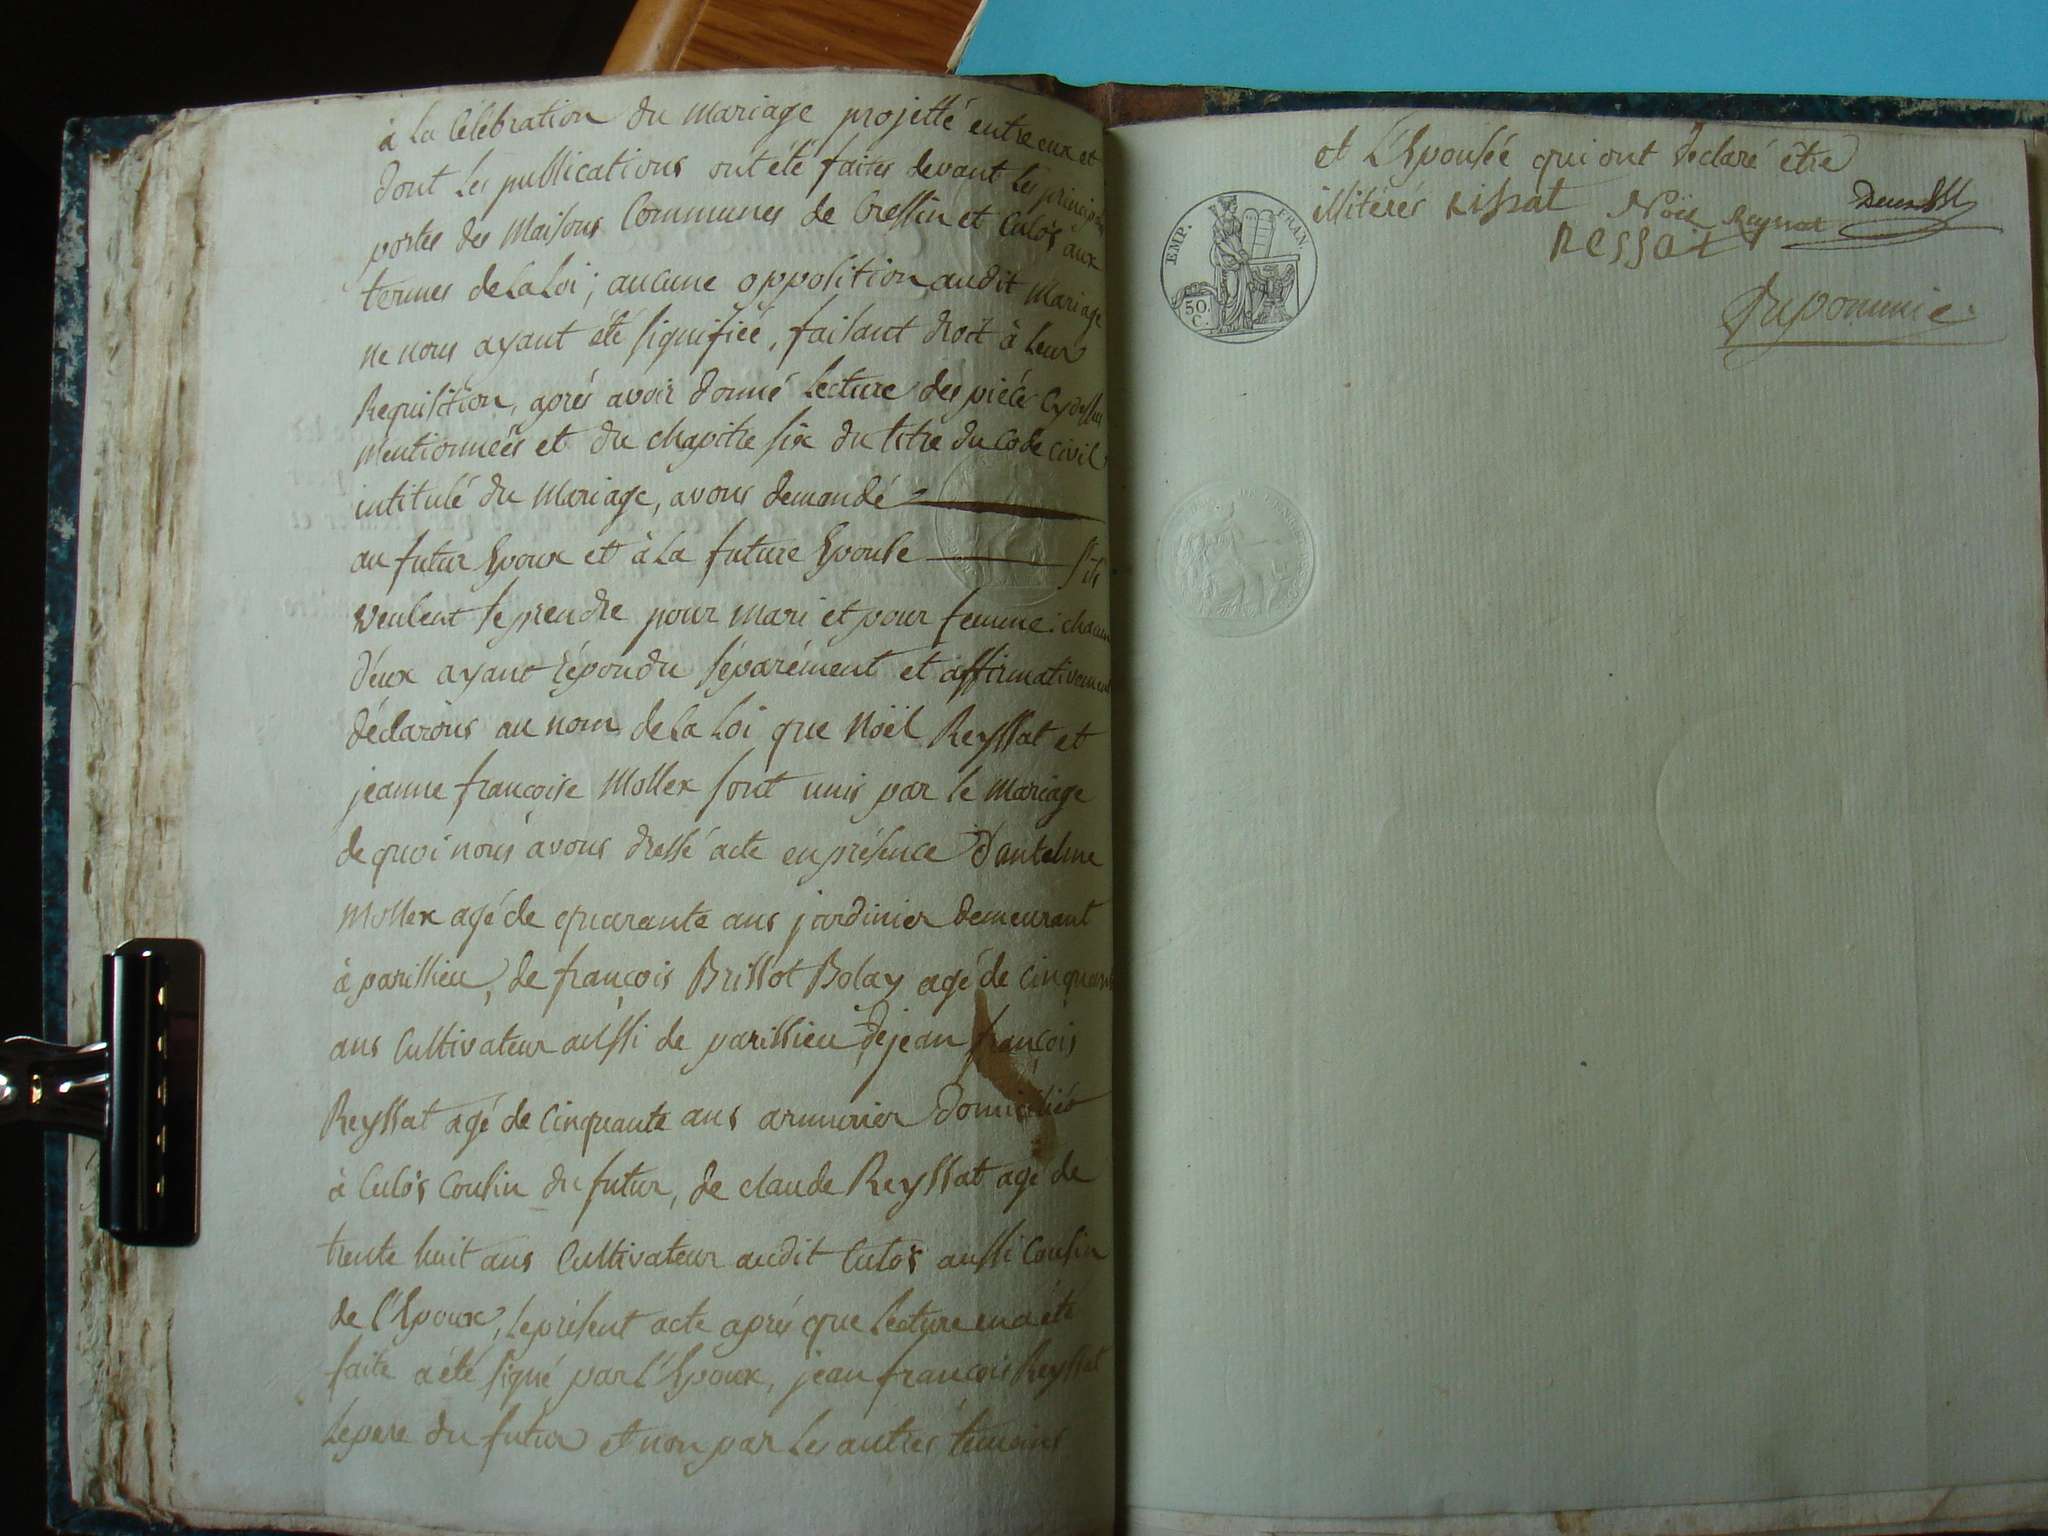 à la Célébration du mariage projetté entre eux et
dont les publications ont été faites devant les principales
portes des Maisons Communes de Cressin et Culos aux
termes de la Loi; aucune opposition audit Mariage
ne nous ayant été signifiée, faisant droit à leur
Requisition, aprés avoir donné lecture des piéces cy dessus
mentionnées et du chapitre six du titre du Code civil
intitulé du Mariage, avons demandé
au futur Epoux et à la future Epouse s'ils
veulent se prendre pour mari et pour femme: chacun
d'eux ayant répondu séparément et affirmativement
déclarons au nom de la Loi que Noël Reyssat et
jeanne françoise Mollex sont unis par le Mariage
de quoi nous avons dressé acte en présence d'antelme
Mollex agé de quarante ans jardinier demeurant
à parissieu, de françois Brissot Bolay agé de cinquante
ans Cultivateur aussi de parissieu, de jean françois
Reyssat agé de cinquante ans armurier domicilié
à Culos Cousin du futur, de claude Reyssat agé de
trente huit ans Cultivateur audit Culos aussi Cousin
de l'Epoux, le présent acte aprés que lecture en a été
faite a été signé par l'Epoux, jean françois Reyssat
le pere du futur et non par les autres témoins
et l'Epousée qui ont déclaré être
illitérés Rissat Noël Reyssat
Ressat
Duponnie
EMP. FRAN.
50 C.